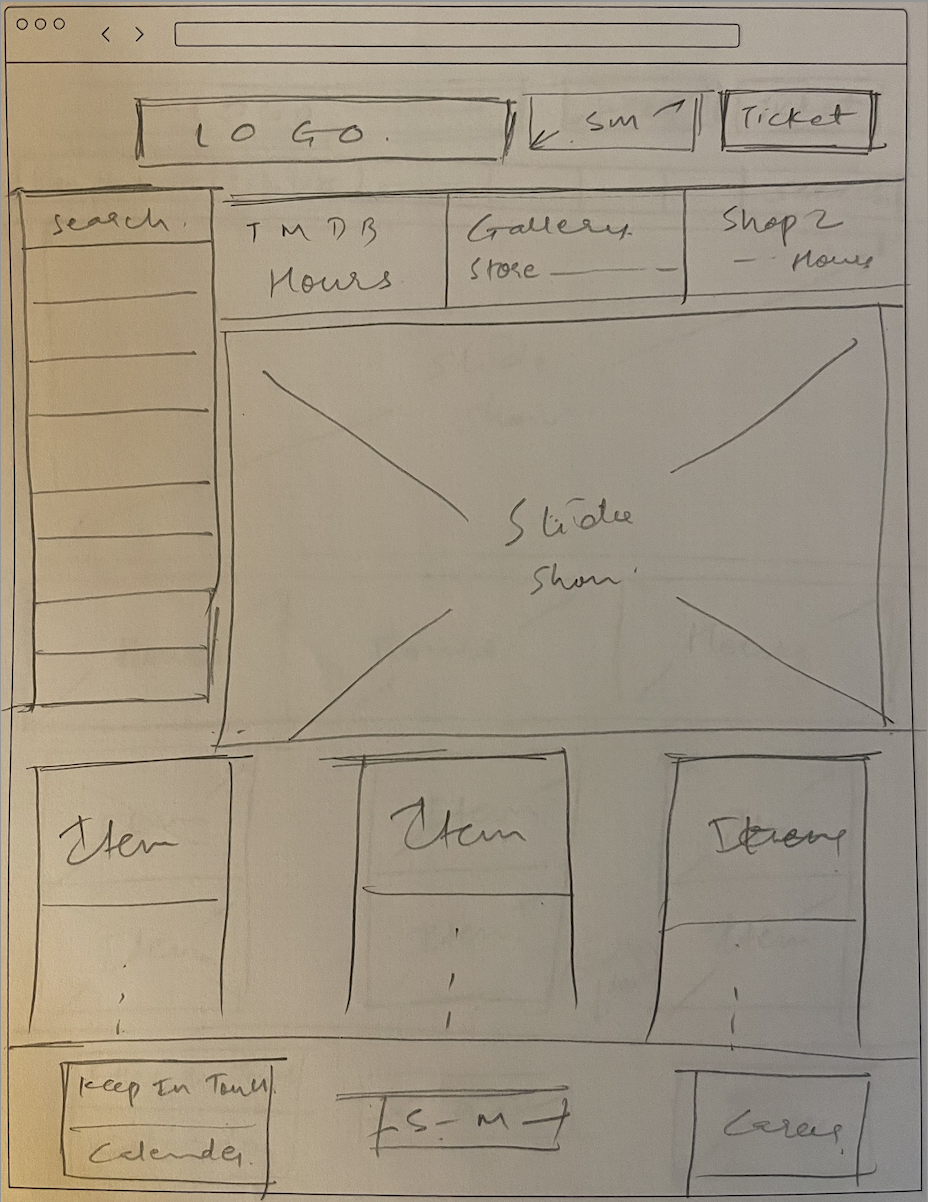 LOGO.
SM
Ticket
search.
TMDB
Hours
Gallery
Store
Shop 2
Hours
Slide
Show
Item
Item
Keep In Touch
Calender.
S - M